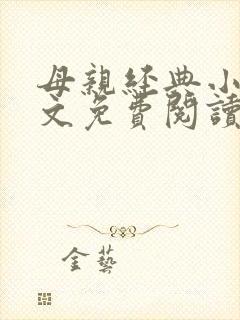 母親經典小
文免費閱讀
金藝